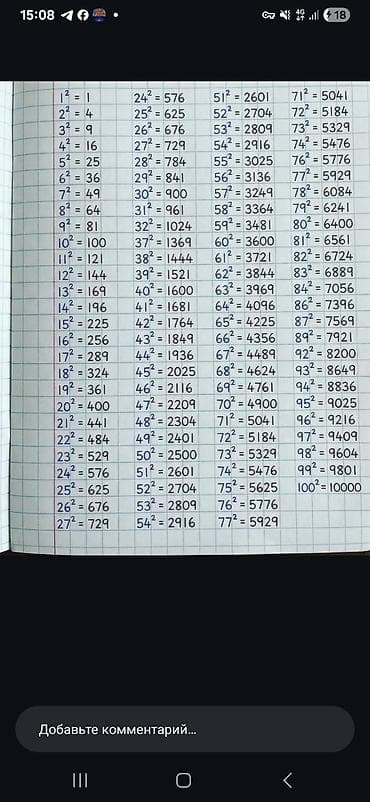 15:08
4G
18
1² = 1
2² = 4
3² = 9
4² = 16
5² = 25
6² = 36
7² = 49
8² = 64
9² = 81
10² = 100
11² = 121
12² = 144
13² = 169
14² = 196
15² = 225
16² = 256
17² = 289
18² = 324
19² = 361
20² = 400
21² = 441
22² = 484
23² = 529
24² = 576
25² = 625
26² = 676
27² = 729
24² = 576
25² = 625
26² = 676
27² = 729
28² = 784
29² = 841
30² = 900
31² = 961
32² = 1024
37² = 1369
38² = 1444
39² = 1521
40² = 1600
41² = 1681
42² = 1764
43² = 1849
44² = 1936
45² = 2025
46² = 2116
47² = 2209
48² = 2304
49² = 2401
50² = 2500
51² = 2601
52² = 2704
53² = 2809
54² = 2916
51² = 2601
52² = 2704
53² = 2809
54² = 2916
55² = 3025
56² = 3136
57² = 3249
58² = 3364
59² = 3481
60² = 3600
61² = 3721
62² = 3844
63² = 3969
64² = 4096
65² = 4225
66² = 4356
67² = 4489
68² = 4624
69² = 4761
70² = 4900
71² = 5041
72² = 5184
73² = 5329
74² = 5476
75² = 5625
76² = 5776
77² = 5929
71² = 5041
72² = 5184
73² = 5329
74² = 5476
76² = 5776
77² = 5929
78² = 6084
79² = 6241
80² = 6400
81² = 6561
82² = 6724
83² = 6889
84² = 7056
86² = 7396
87² = 7569
89² = 7921
92² = 8200
93² = 8649
94² = 8836
95² = 9025
96² = 9216
97² = 9409
98² = 9604
99² = 9801
100² = 10000
Добавьте комментарий...